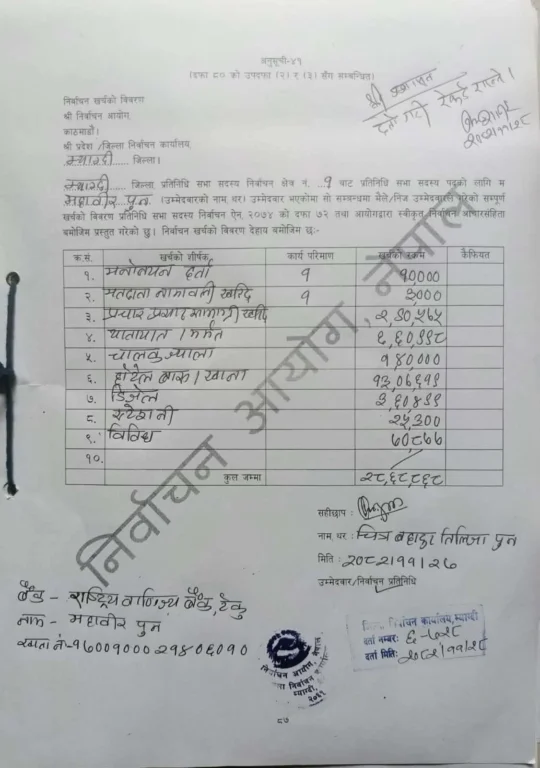 अनुसूची-४१
(दफा ८० को उपदफा (२) र (३) सँग सम्बन्धित)
निर्वाचन खर्चको विवरण
श्री निर्वाचन आयोग
काठमाडौं।
श्री प्रदेश /जिल्ला निर्वाचन कार्यालय,
म्याग्दी...... जिल्ला।
म्याग्दी...... जिल्ला प्रतिनिधि सभा सदस्य निर्वाचन क्षेत्र नं. १ बाट प्रतिनिधि सभा सदस्य पदको लागि म
महावीर पुन (उम्मेदवारको नाम थर) उम्मेदवार भएकोमा सो सम्बन्धमा मैले/निज उम्मेदवारले गरेको सम्पूर्ण
खर्चको विवरण प्रतिनिधि सभा सदस्य निर्वाचन ऐन, २०७४ को दफा ७२ तथा आयोगद्वारा स्वीकृत निर्वाचन आचारसंहिता
बमोजिम प्रस्तुत गरेको छु। निर्वाचन खर्चको विवरण देहाय बमोजिम छः-
क.सं. खर्चको शीर्षक कार्य परिमाण खर्चको रकम कैफियत
१. मनोनयन दर्ता १ १०,०००
२. मतदाता नामावली खरिद १ ३,०००
३. प्रचार प्रसार सामाग्री खरिद २,३०,५६५
४. यातायात / मर्मत
५. चालक ज्याला १४०,०००
६. होटेल बास / खाना
७. डिजेल
८. स्टेशनरी २५,३००
९. विविध
१०.
कुल जम्मा २८,६८,८६८
सहीछाप :
नाम, थर : चित्र बहादुर तिलिजा पुन
मिति : २०८२।११।२७
उम्मेदवार/निर्वाचन प्रतिनिधि
बैंक - राष्ट्रिय वाणिज्य बैंक, टेकु
नाम - महावीर पुन
खाता नं-
जिल्ला निर्वाचन कार्यालय, म्याग्दी
दर्ता नम्बर: ६-७२८
दर्ता मिति: २०८२/११/२८
निर्वाचन आयोग, नेपाल
८७